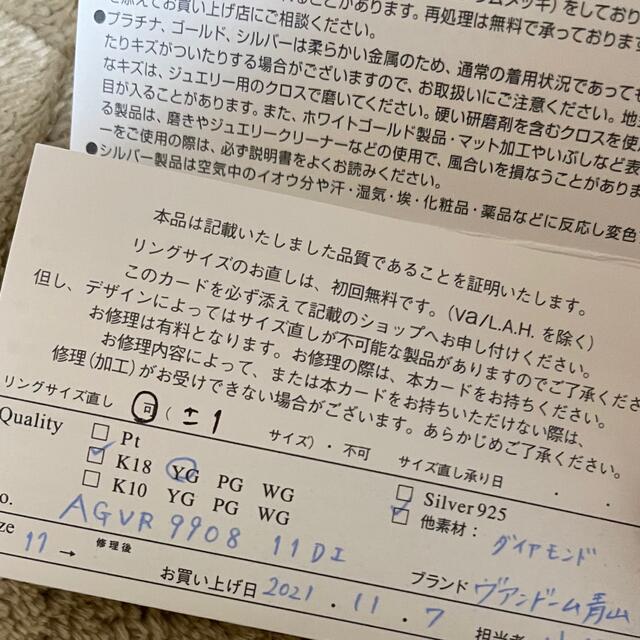 があります。再処理は無料で承っております
を添えてお買い上げ店にご相談ください。
●プラチナ、ゴールド、シルバーは柔らかい金属のため、通常の着用状況であっても
たりキズがついたりする場合がございますので、お取扱いにご注意ください。地
なキズは、ジュエリー用のクロスで磨いてください。硬い研磨剤を含むクロスを使
目が入ることがあります。また、ホワイトゴールド製品・マット加工やいぶしなど表
る製品は、磨きやジュエリークリーナーなどの使用で、風合いを損なうことがありま
ーをご使用の際は、必ず説明書をよくお読みください。
●シルバー製品は空気中のイオウ分や汗・湿気・埃・化粧品・薬品などに反応し変色
本品は記載いたしました品質であることを証明いたします。
リングサイズのお直しは、初回無料です。(Va/L.A.H. を除く)
このカードを必ず添えて記載のショップへお申し付けください。
但し、デザインによってはサイズ直しが不可能な製品がありますのでご了承くださ
お修理は有料となります。お修理の際は、本カードをお持ちください。
お修理内容によって、または本カードをお持ちいただけない際は、
修理(加工)がお受けできない場合がございます。あらかじめご了承ください。
リングサイズ直し 可 ( ±1 サイズ)・不可 サイズ直し承り日 ・ ・
Quality □ Pt □ Silver925
☑ K18 YG PG WG ☑ 他素材: ダイヤモンド
□ K10 YG PG WG
o. AGVR 9908 11DI
ze 11 → 修理後 ブランド ヴァンドーム青山
お買い上げ日 2021 . 11 . 7 担当者